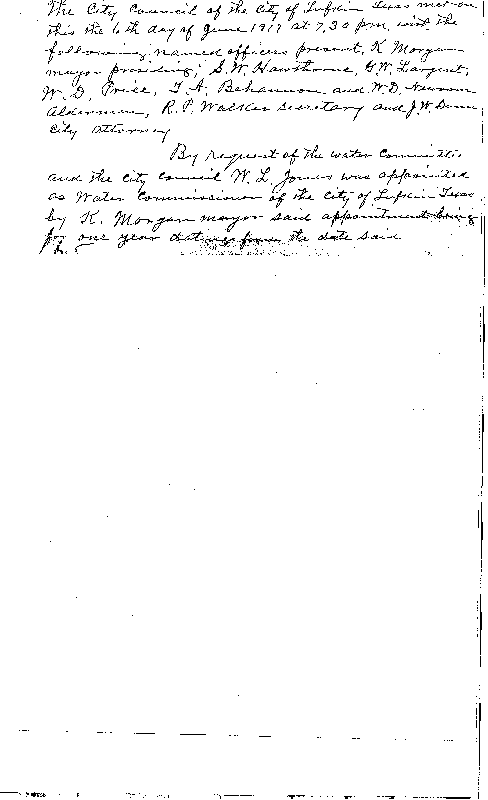 The City Council of the City of Lufkin Texas met on
this the 6th day of June 1917 at 7,30 P.m. with the
following named officers present, K Morgan
mayor presiding; S.W. Hawthorne, G.W. Largent,
W. D, Price, T. A. Behannon and W.D. Newsom
Aldermen, R.P. Walker Secretary and J.W. Dunn
City Attorney
By request of the water Committee
and the City Council W. L. Jones was appointed
as Water Commissioner of the City of Lufkin Texas
by K. Morgan mayor said appointment being
for one year dating from the date said.